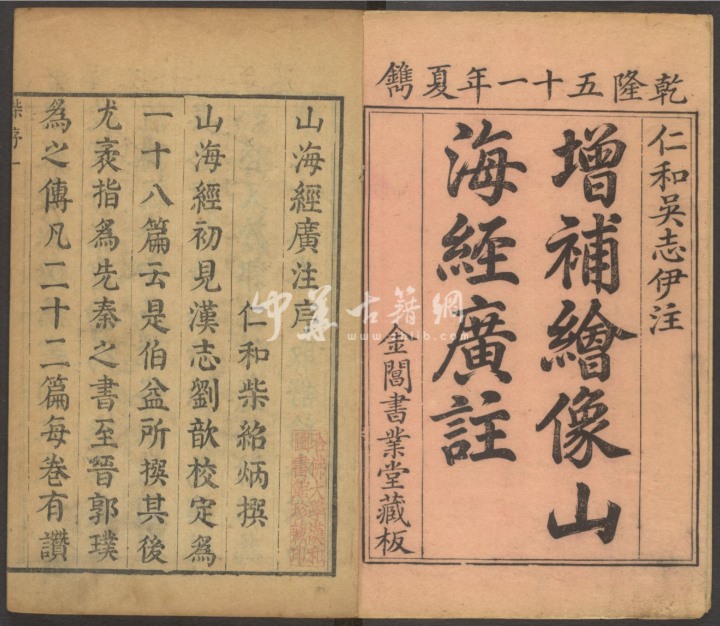 乾隆五十一年夏鐫
仁和吳志伊注
增補繪像山
海經廣註
金閶書業堂藏板
山海經廣注序
仁和柴紹炳撰
山海經初見漢志劉歆校定為
一十八篇云是伯益所撰其後
尤袤指為先秦之書至晉郭璞
為之傳凡二十二篇每卷有讚
柴序一
中華古籍網